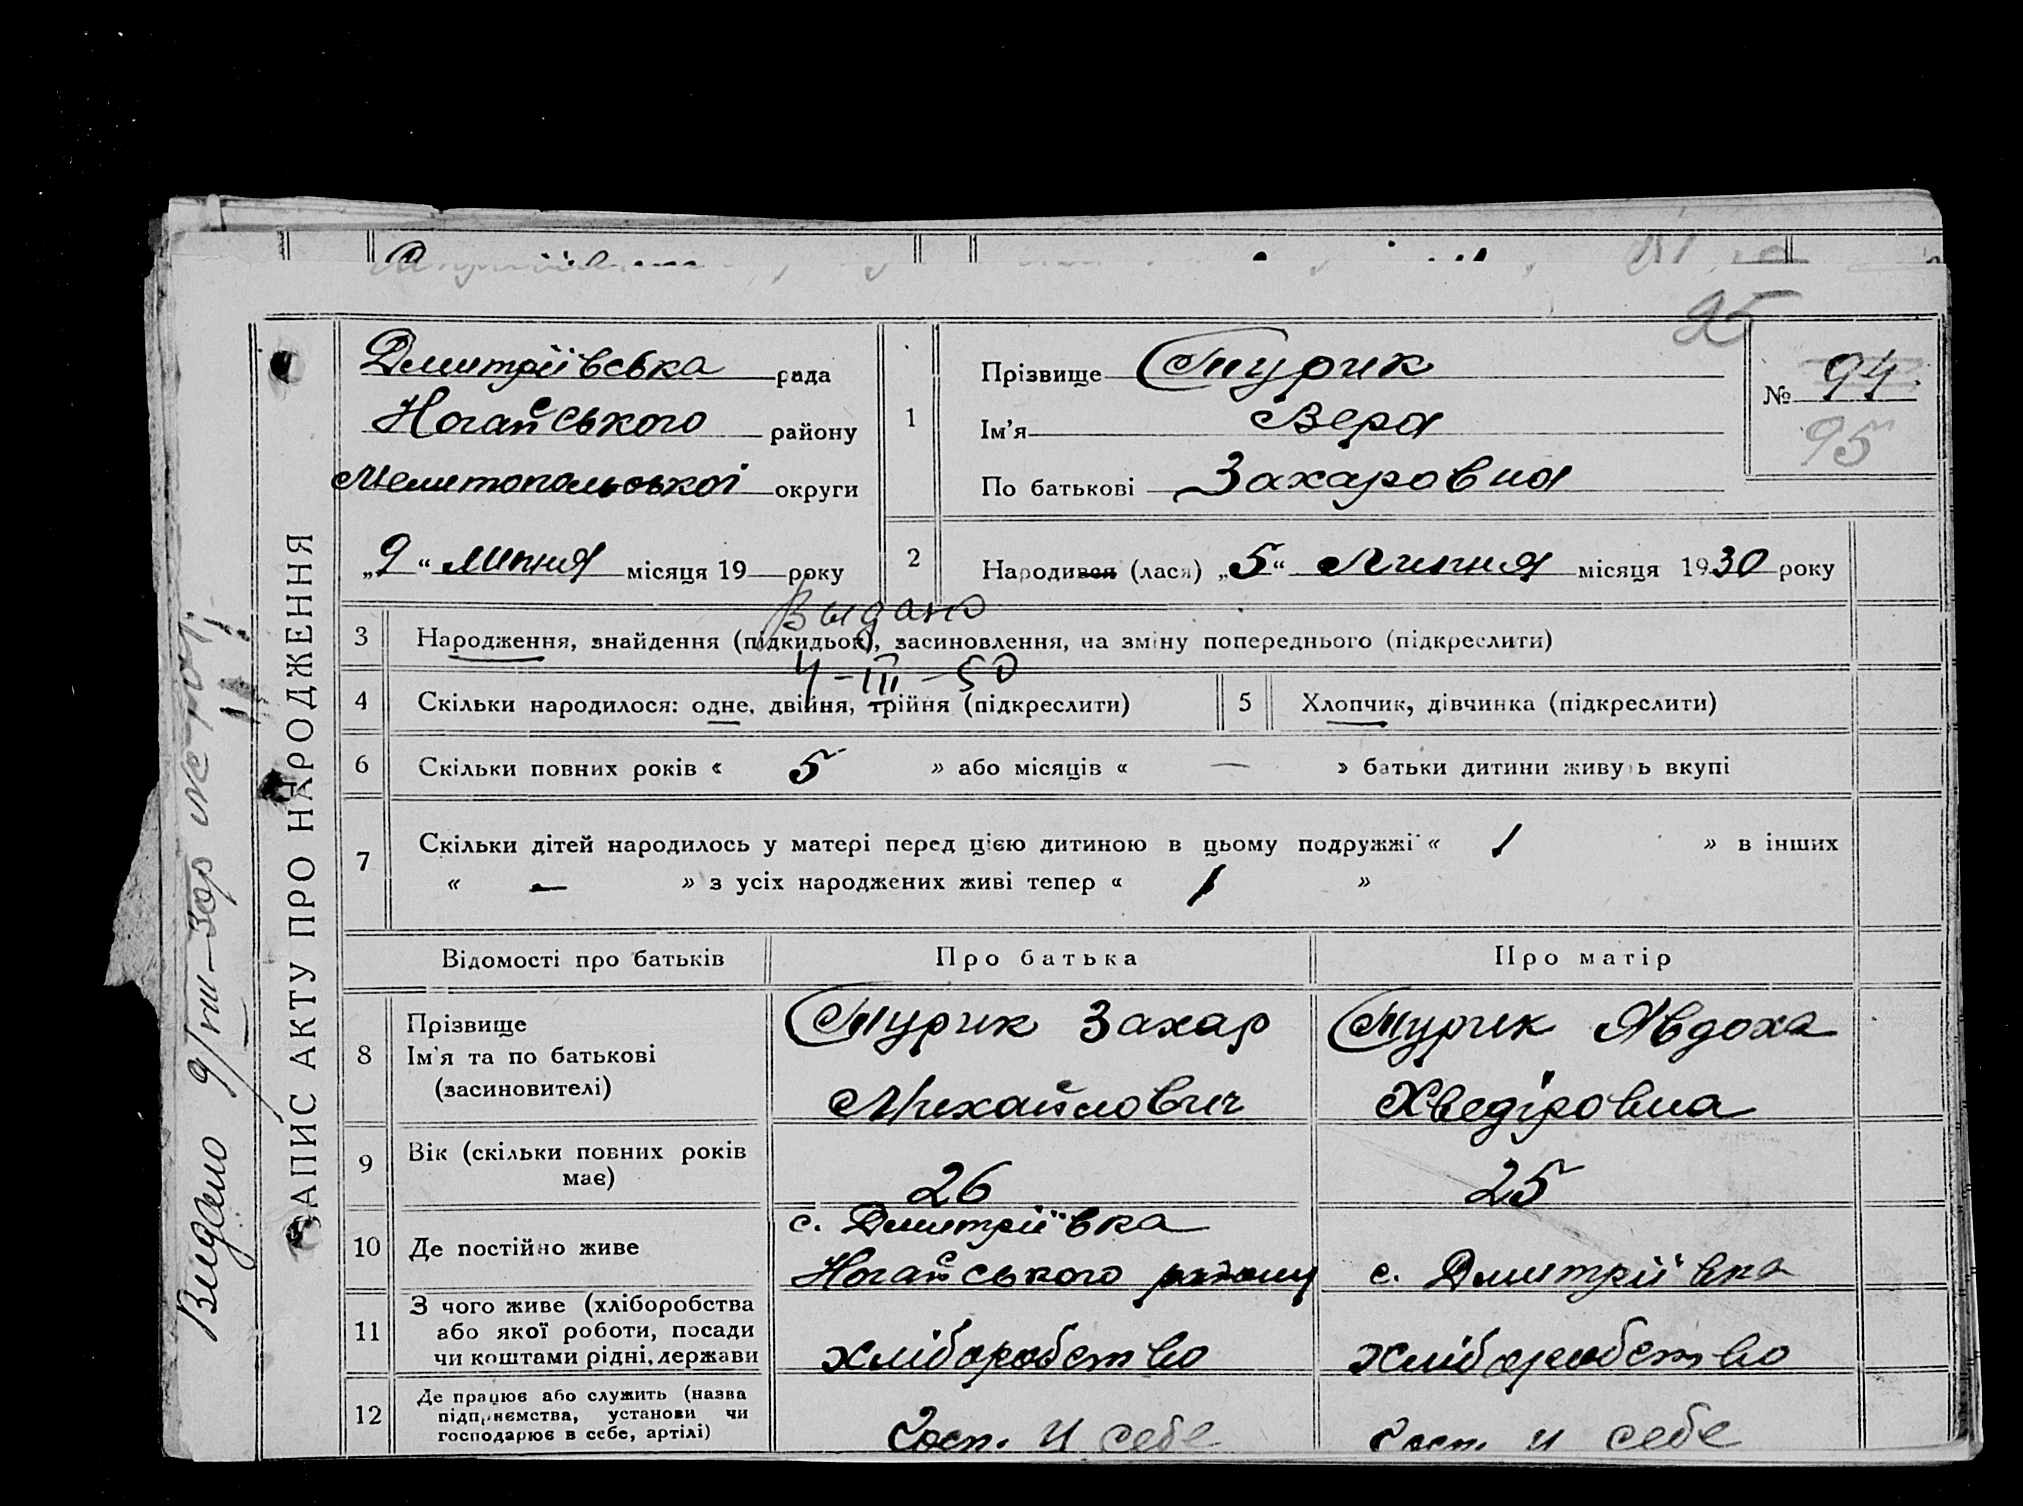 95
ЗАПИС АКТУ ПРО НАРОДЖЕННЯ
Видано 9/VIII
Дмитріївська рада
Ногайського району
Мелитопольської округи
„9“ липня місяця 19 року
1
Прізвище Стурик
Ім'я Вера
По батькові Захаровна
№ 94
95
2
Народився (лася) „5“ Липня місяця 1930 року
Выдано
3 Народження, знайдення (підкидьок), засиновлення, на зміну попереднього (підкреслити)
4-III-50
4 Скільки народилося: одне, двійня, трійня (підкреслити)
5 Хлопчик, дівчинка (підкреслити)
6 Скільки повних років « 5 » або місяців « — » батьки дитини живуть вкупі
7 Скільки дітей народилось у матері перед цією дитиною в цьому подружжі « 1 » в інших
« — » з усіх народжених живі тепер « 1 »
Відомості про батьків Про батька Про матір
8 Прізвище
Ім'я та по батькові
(засиновителі)
Стурик Захар
Михайлович
Стурик Явдоха
Хведіровна
9 Вік (скільки повних років
має)
26
25
10 Де постійно живе
с. Дмитріївка
Ногайського району
с. Дмитріївка
11 З чого живе (хліборобства
або якої роботи, посади
чи коштами рідні, держави
хліборобство
хліборобство
12 Де працює або служить (назва
підприємства, установи чи
господарює в себе, артілі)
Госп. у себе
Госп. у себе